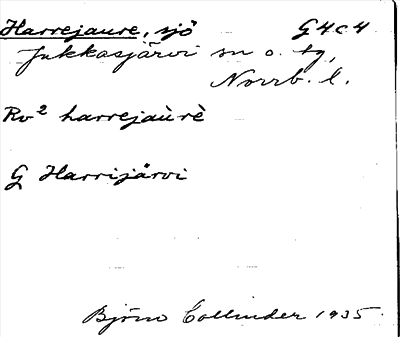 Harrejaure, sjö G4c4
Jukkasjärvi sn o. tg,
Norrb. l.
Rv² harrejaùrè
G Harrijärvi
Björn Collinder 1935.